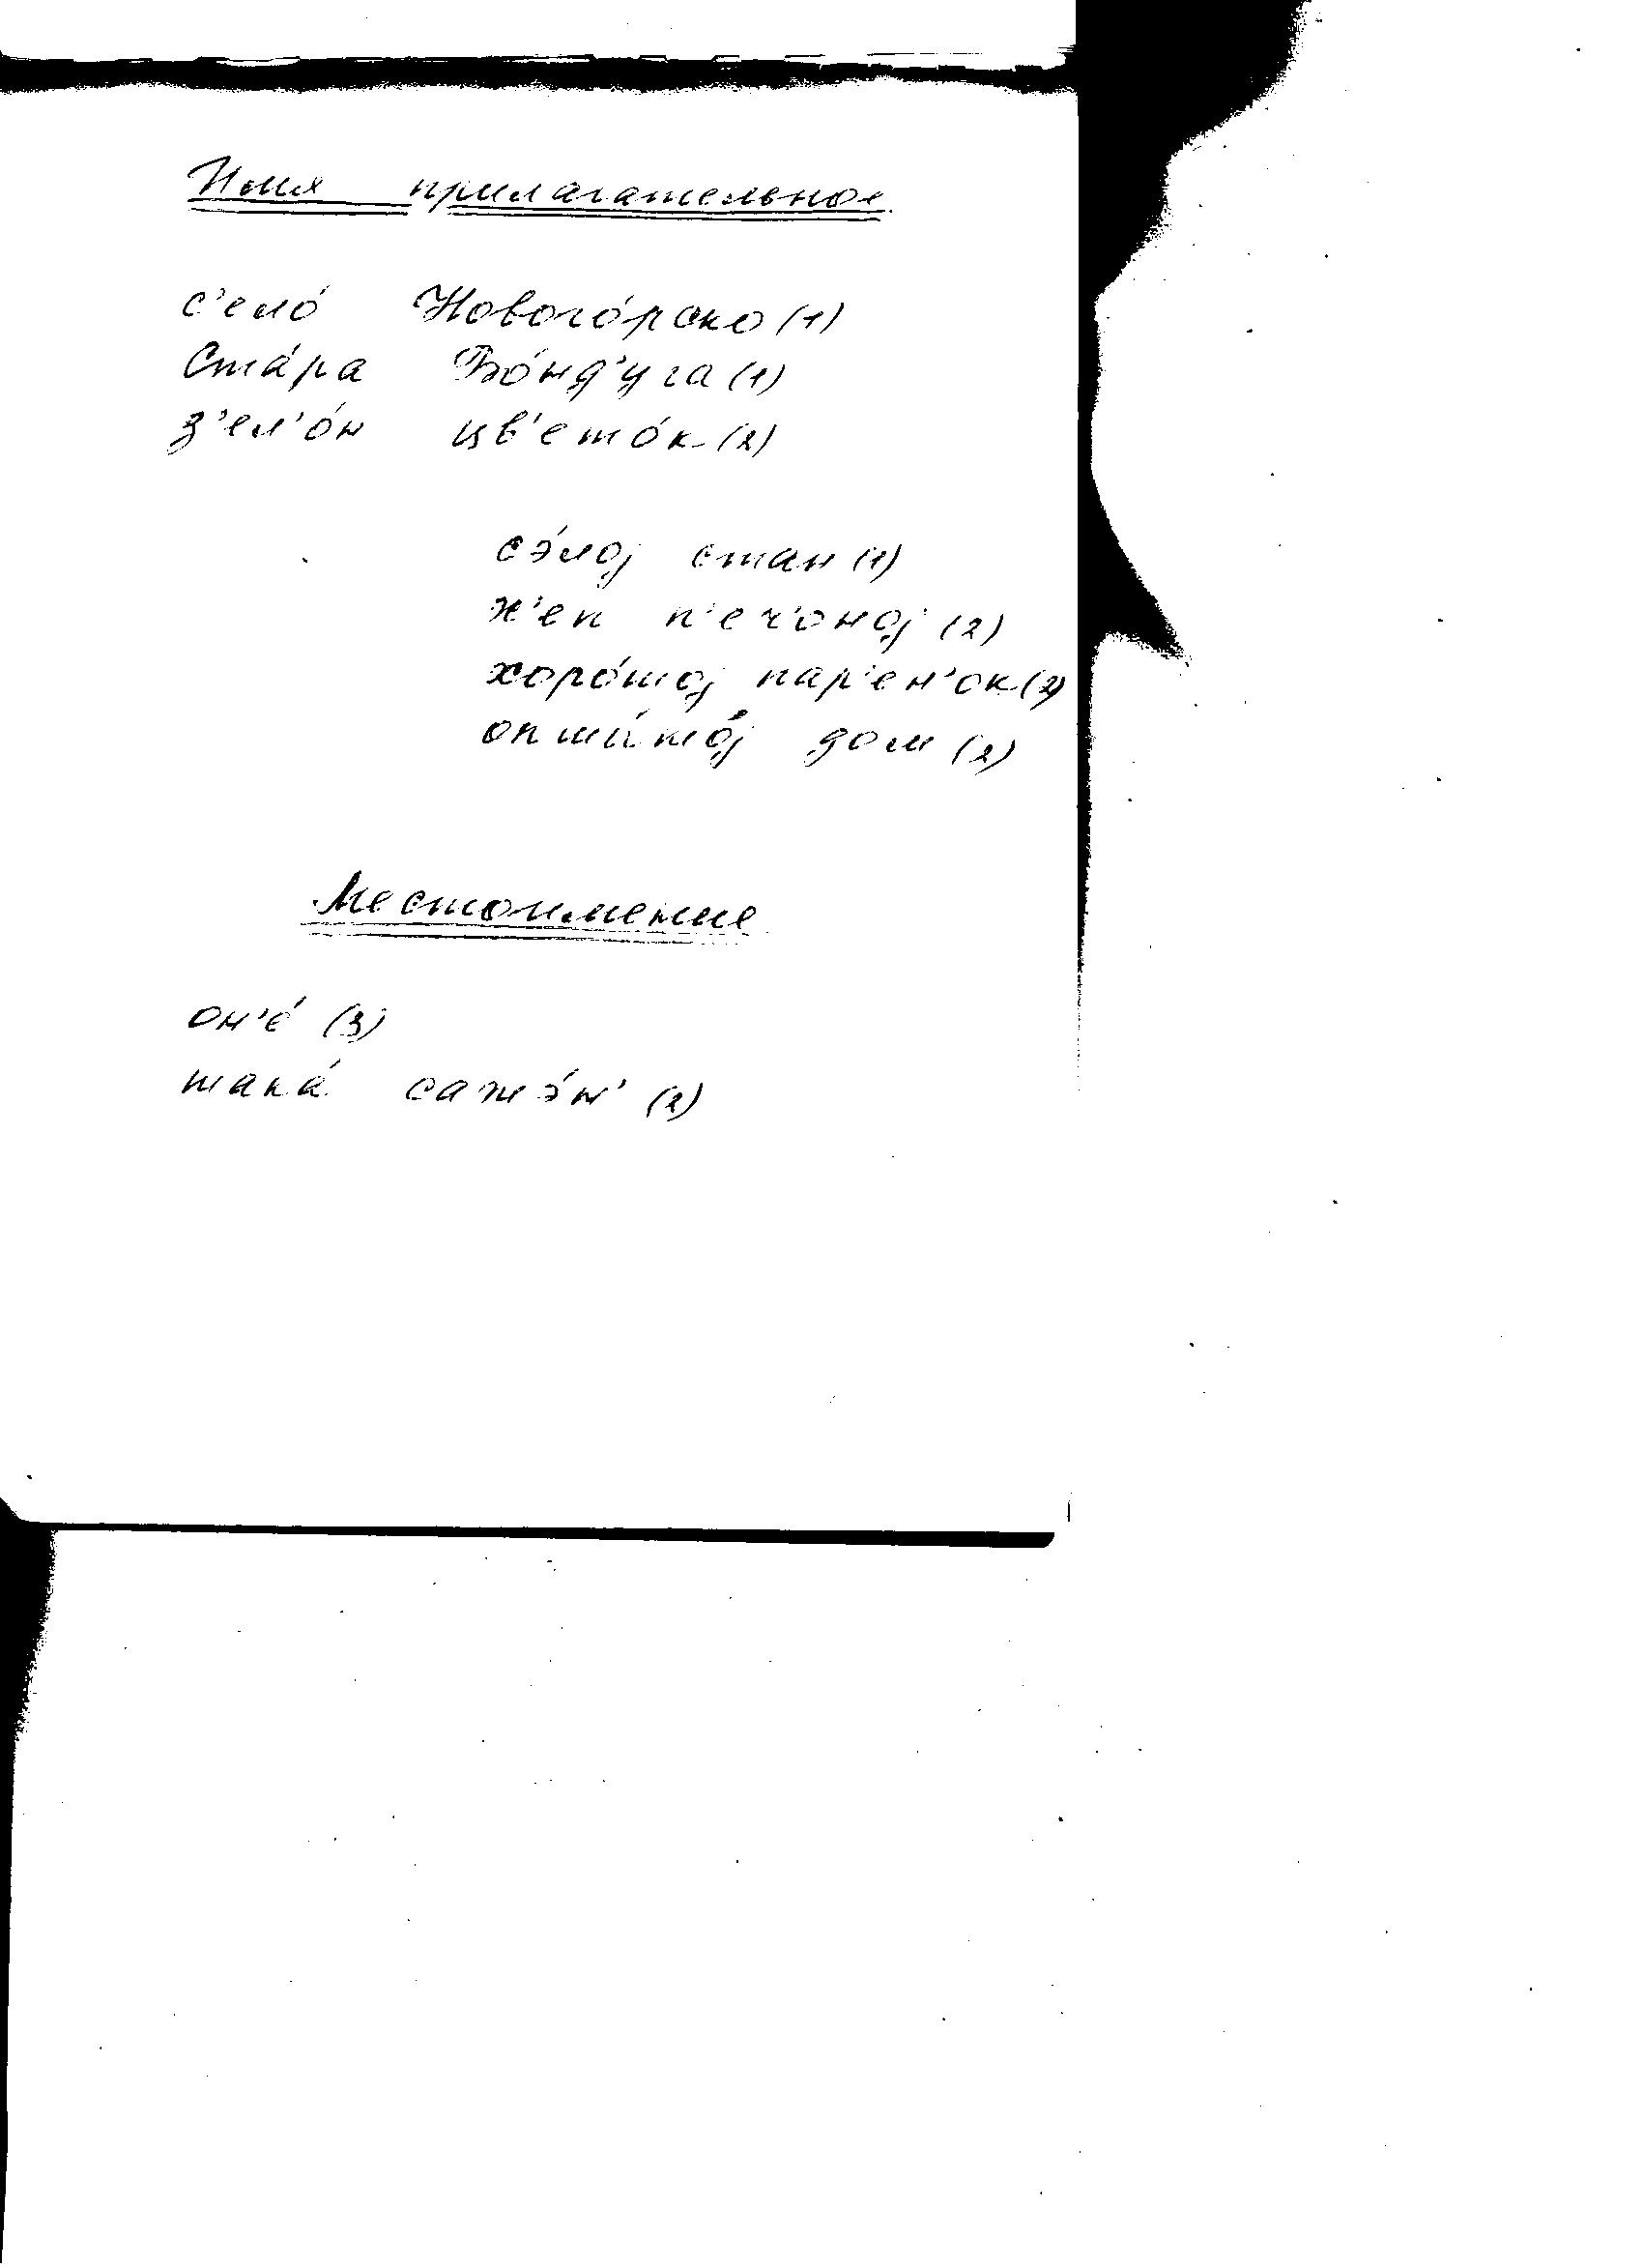 Имя прилагательное
с'ело́ Нового́рско (1)
Ста́ра Бо́нд'уга (1)
з'ел'о́н цв'ето́к (2)
сэ́лој стан (1)
п'еч'оној (2)
хоро́шој пар'ен'ок (2)
опшы́тој дом (2)
Местоимение
он'е́ (3)
така́ сажэ́н' (2)